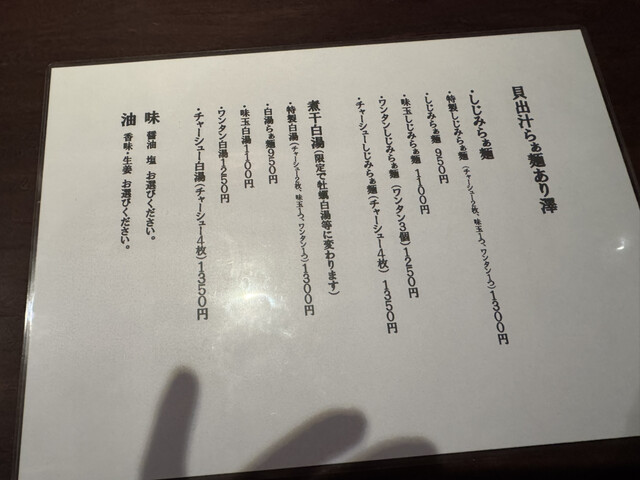 貝出汁らぁ麺あり澤
・しじみらぁ麺
・特製しじみらぁ麺（チャーシュー2枚、味玉1つ、ワンタン1つ）1300円
・しじみらぁ麺 950円
・味玉しじみらぁ麺 1100円
・ワンタンしじみらぁ麺（ワンタン3個）1250円
・チャーシューしじみらぁ麺（チャーシュー4枚）1350円
煮干白湯（限定で牡蠣白湯等に変わります）
・特製白湯（チャーシュー2枚、味玉1つ、ワンタン1つ）1300円
・白湯らぁ麺950円
・味玉白湯1100円
・ワンタン白湯1250円
・チャーシュー白湯（チャーシュー4枚）1350円
味 醤油 塩 お選びください。
油 香味・生姜 お選びください。